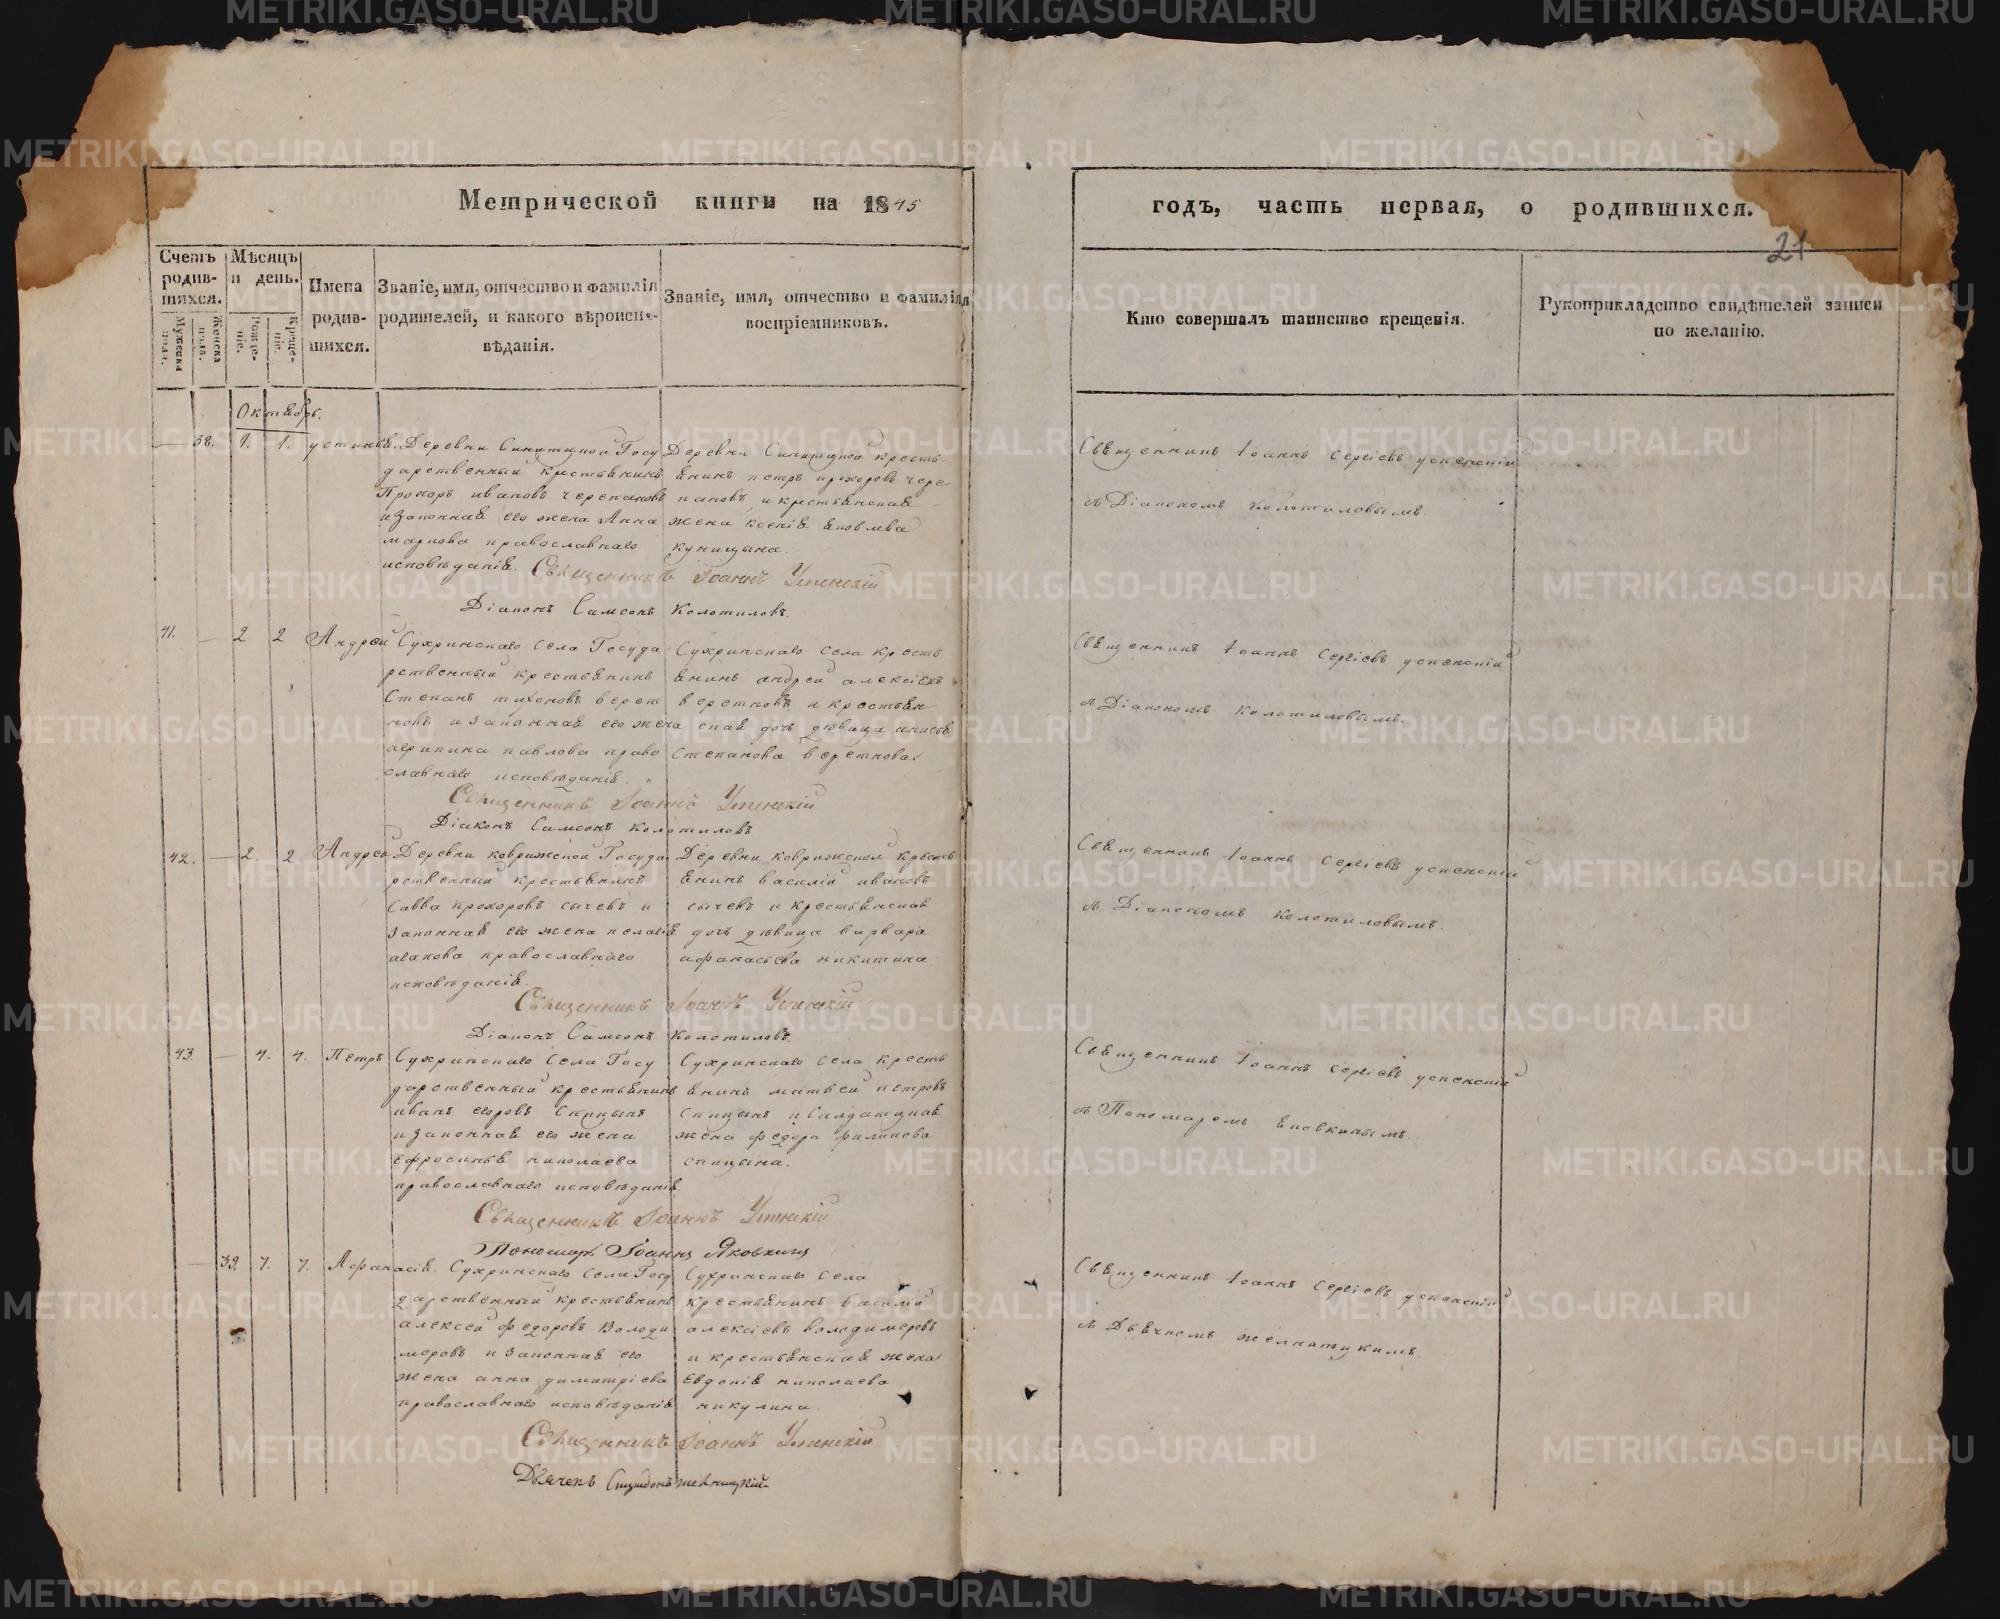 Метрической книги на 1845
годъ, часть первая, о родившихся.
21
Счетъ родившихся.
Мужеска пола.
Женска пола.
Мѣсяцъ и день.
Рожденіе.
Крещеніе.
Имена родившихся.
Званіе, имя, отчество и фамилія родителей, и какого вѣроисповѣданія.
Званіе, имя, отчество и фамилія воспріемниковъ.
Кто совершалъ таинство крещенія.
Рукоприкладство свидѣтелей записи по желанію.
Октябрь.
38. 1. 1. устинья
Деревни Синицкой Госу
дарственный крестьянинъ
Прохоръ ивановъ черепановъ
и законная его жена Анна
маркова православнаго
исповѣданія.
Деревни Синицкой кресть
янинъ петръ прохоровъ чере
пановъ, и крестьянская
жена ксенія яковлева
куницына.
Священникъ Іоаннъ Сергіевъ успенскій
съ Діакономъ Колотиловымъ.
Священникъ Іоаннъ Успенскій
Діаконъ Самсонъ Колотиловъ.
41. 2 2 Андрей
Сухринскаго Села Госуда
рственный крестьянинъ
Степанъ тихоновъ верет
новъ и законная его жена
агрипина павлова право
славнаго исповѣданія.
Сухринскаго села кресть
янинъ андрей алексѣевъ
веретновъ и крестьян
ская дочь дѣвица анисья
Степанова веретнова.
Священникъ Іоаннъ Сергіевъ успенскій
съ Діакономъ Колотиловымъ.
Священникъ Іоаннъ Успенскій
Діаконъ Самсонъ Колотиловъ
42. 2. 2 Андрей
Деревни коврижской Госуда
рственный крестьянинъ
Савва прохоровъ сычевъ и
законная его жена пелагія
агапова православнаго
исповѣданія.
Деревни коврижской кресть
янинъ василій ивановъ
сычевъ и крестьянская
дочь дѣвица варвара
афанасьева никитина.
Священникъ Іоаннъ Сергіевъ успенскій
съ Діакономъ Колотиловымъ.
Священникъ Іоаннъ Успенскій
Діаконъ Самсонъ Колотиловъ.
43. 4. 4. Петръ
Сухринскаго Села Госу
дарственный крестьянинъ
иванъ егоровъ спицынъ
и законная его жена
ефросинья николаева
православнаго исповѣданія
Сухринскаго села кресть
янинъ матвей петровъ
спицынъ и Салдатцкая
жена федора филипова
спицына.
Священникъ Іоаннъ Сергіевъ успенскій
съ Пономаремъ Яковкинымъ.
Священникъ Іоаннъ Успенскій
Пономарь Іоаннъ Яковкинъ
39. 7. 7. Афанасія.
Сухринскаго Села Госу
дарственный крестьянинъ
алексей федоровъ Володи
меровъ и законная его
жена анна димитріева
православнаго исповѣданія
Сухринскаго села
крестьянинъ василій
алексіевъ володимеровъ
и крестьянская жена
Евдокія николаева
никулина.
Священникъ Іоаннъ Сергіевъ успенскій
Священникъ Іоаннъ Успенскій
Дьячекъ